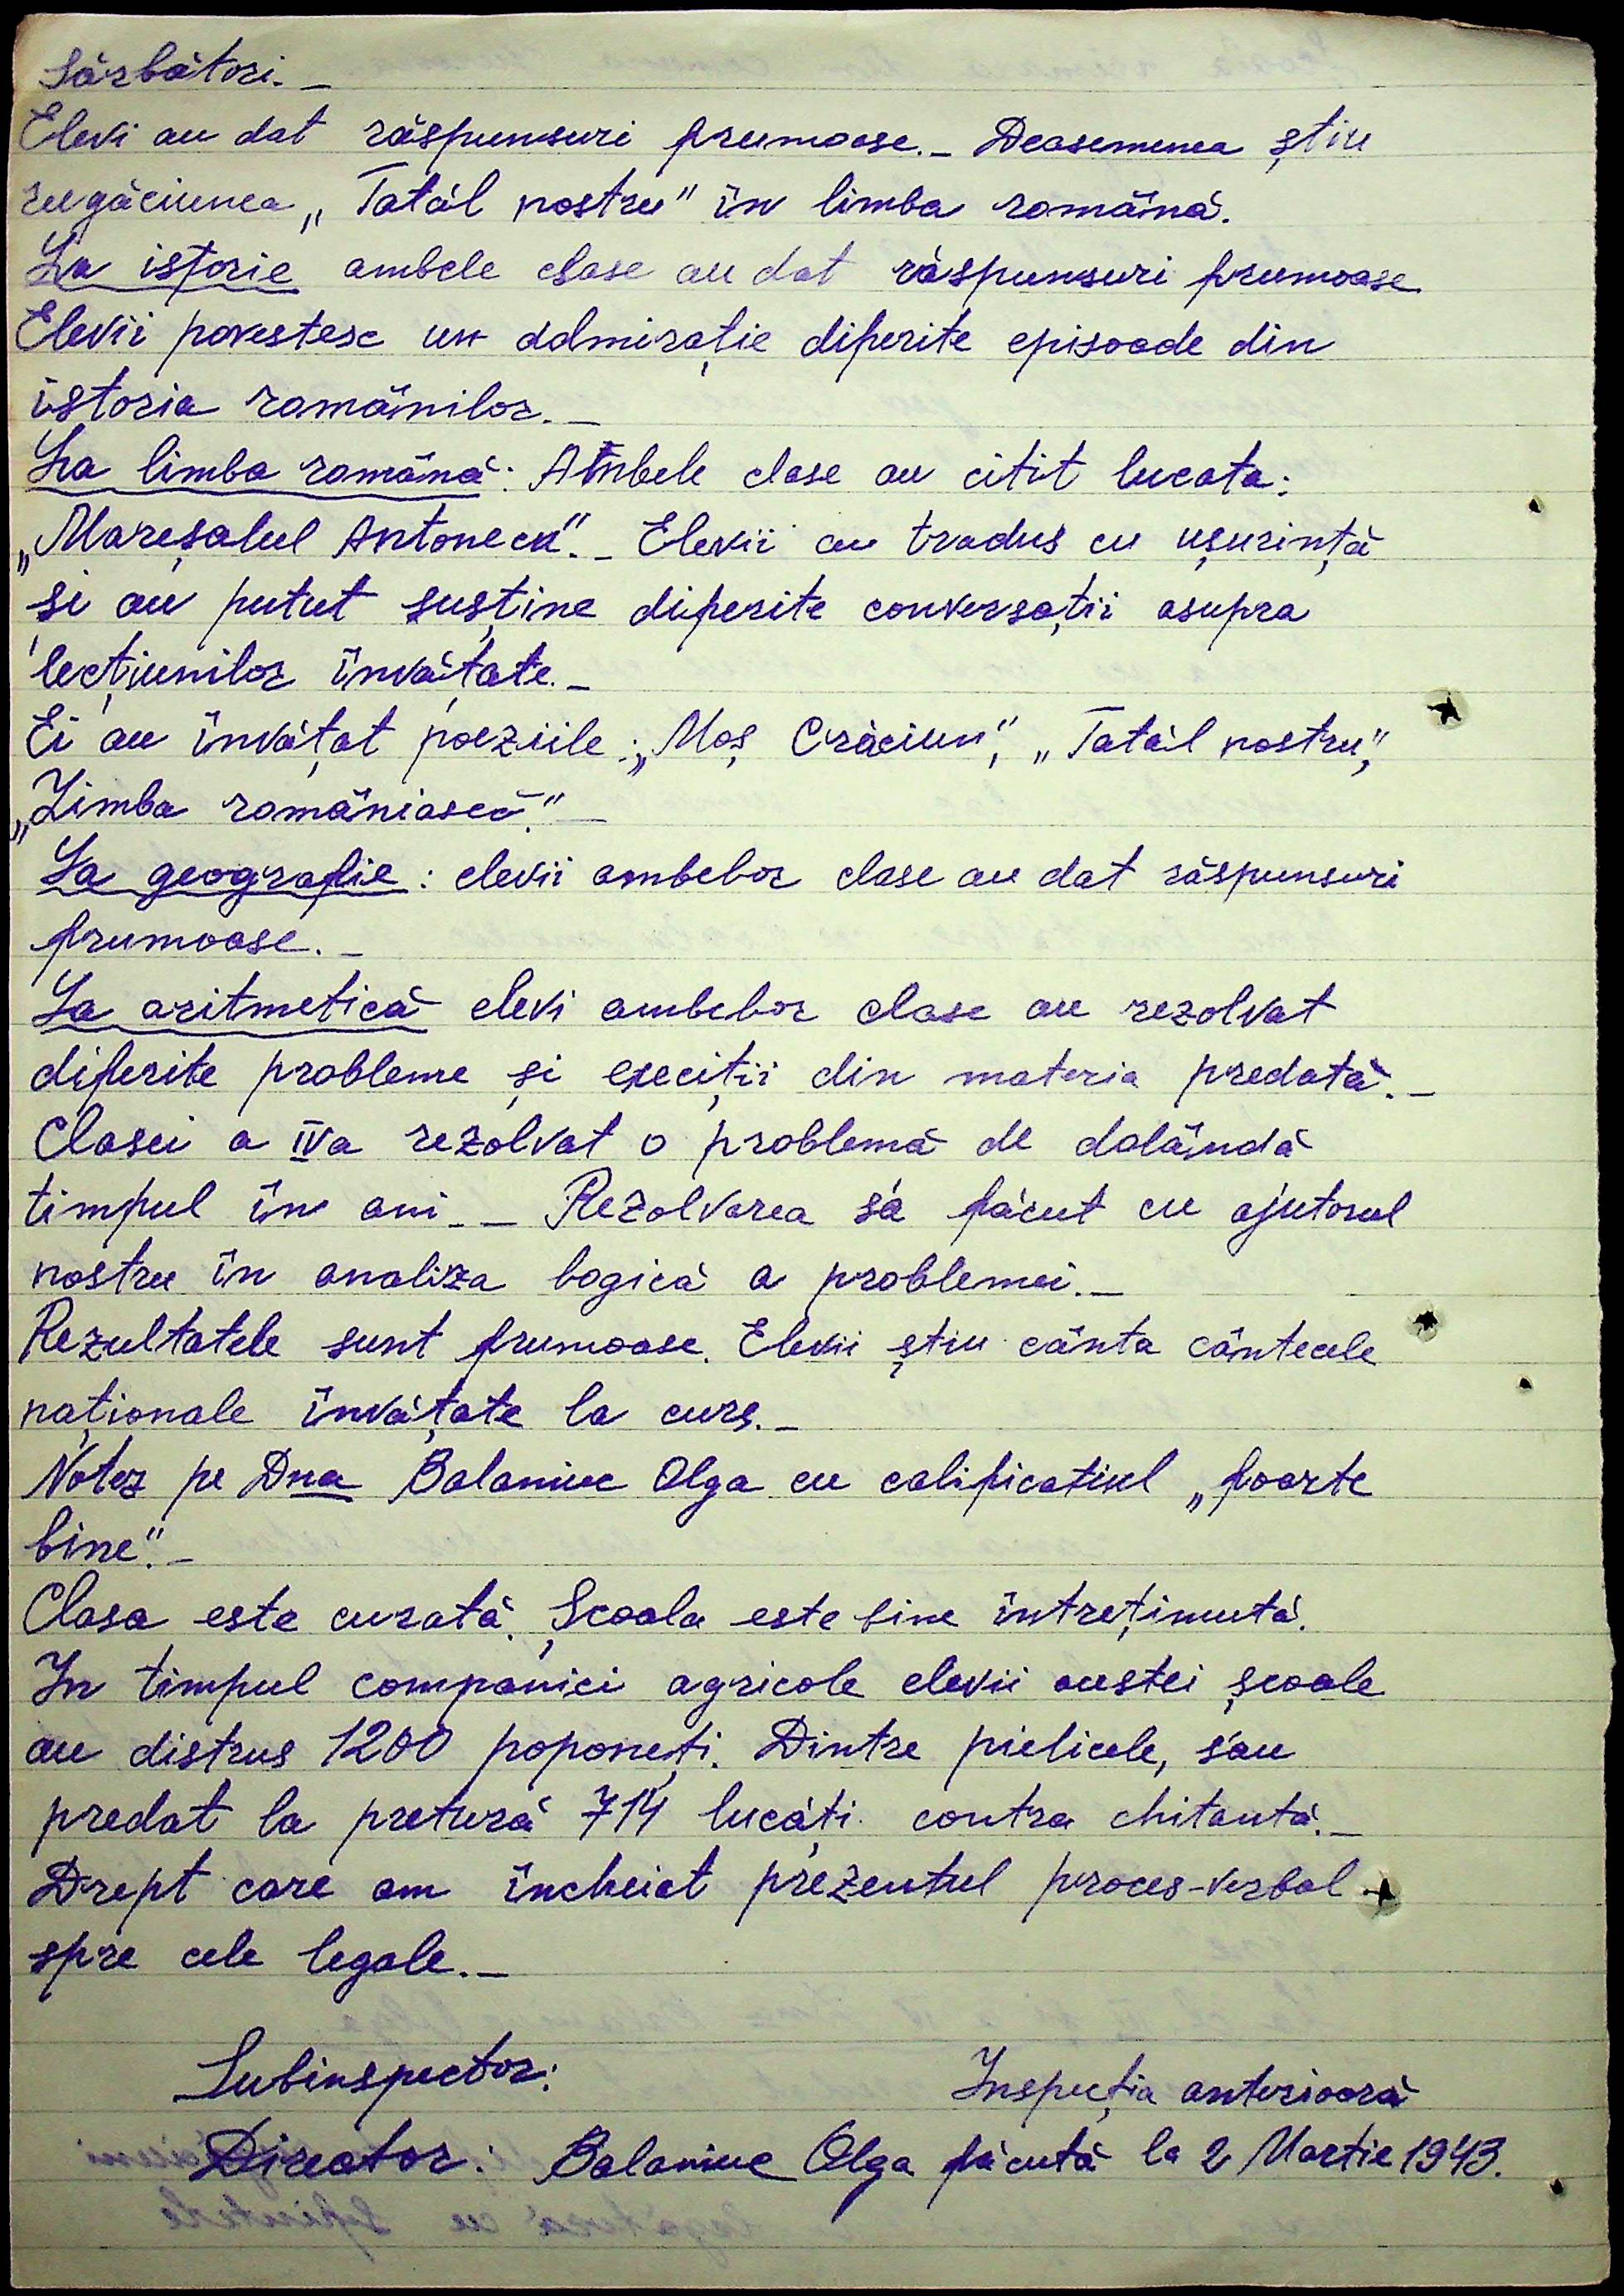 Sărbători._
Elevi au dat răspunsuri frumoase._ Deasemenea știu
rugăciunea „Tatăl nostru" în limba română.
La istorie ambele clase au dat răspunsuri frumoase
Elevii povestesc un admirație diferite episoade din
istoria românilor._
La limba română: Ambele clase au citit bucata:
„Mareșalul Antonecu"._ Elevii au tradus cu ușurință
și au putut susține diferite conversații asupra
lecțiunilor învățate._
Ei au învățat poeziile: „Moș Crăciun", „Tatăl nostru",
„Limba româniască."_
La geografie: elevii ambelor clase au dat răspunsuri
frumoase._
La aritmetică elevi ambelor clase au rezolvat
diferite probleme și execiții din materia predată._
Clasei a IVa rezolvat o problemă de dolândă
timpul în ani._ Rezolvarea sa făcut cu ajutorul
nostru în analiza logică a problemei._
Rezultatele sunt frumoase. Elevii știu cânta cântecele
naționale învățate la curs._
Notez pe Dna Balaniuc Olga cu calificativul „foarte
bine"._
Clasa este curată. Școala este bine întreținută.
In timpul companiei agricole elevii acestei școale
au distrus 1200 poponeți. Dintre pielicele, sau
predat la pretură 714 bucăți contra chitantă._
Drept care am încheiat prezentul proces-verbal
spre cele legale._
Subinspector:
Inspecția anterioară
Director: Balaniuc Olga făcută la 2 Martie 1943.